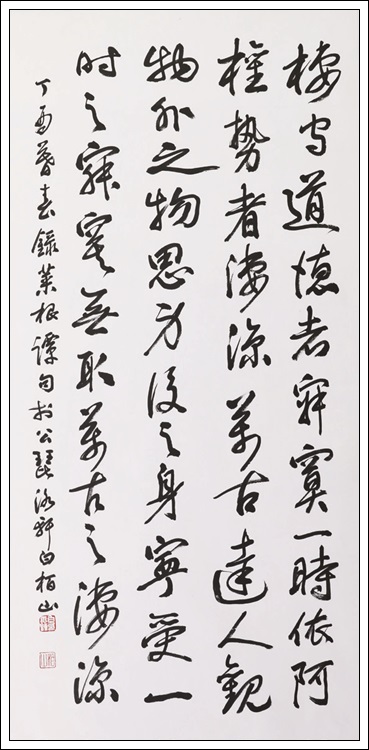 棲守道德者寂寞一時依阿
權勢者淒涼萬古達人觀
物外之物思身後之身寧受一
时之寂寞無取萬古之淒涼
丁酉暮春錄菜根譚句於公琵軒白柏山